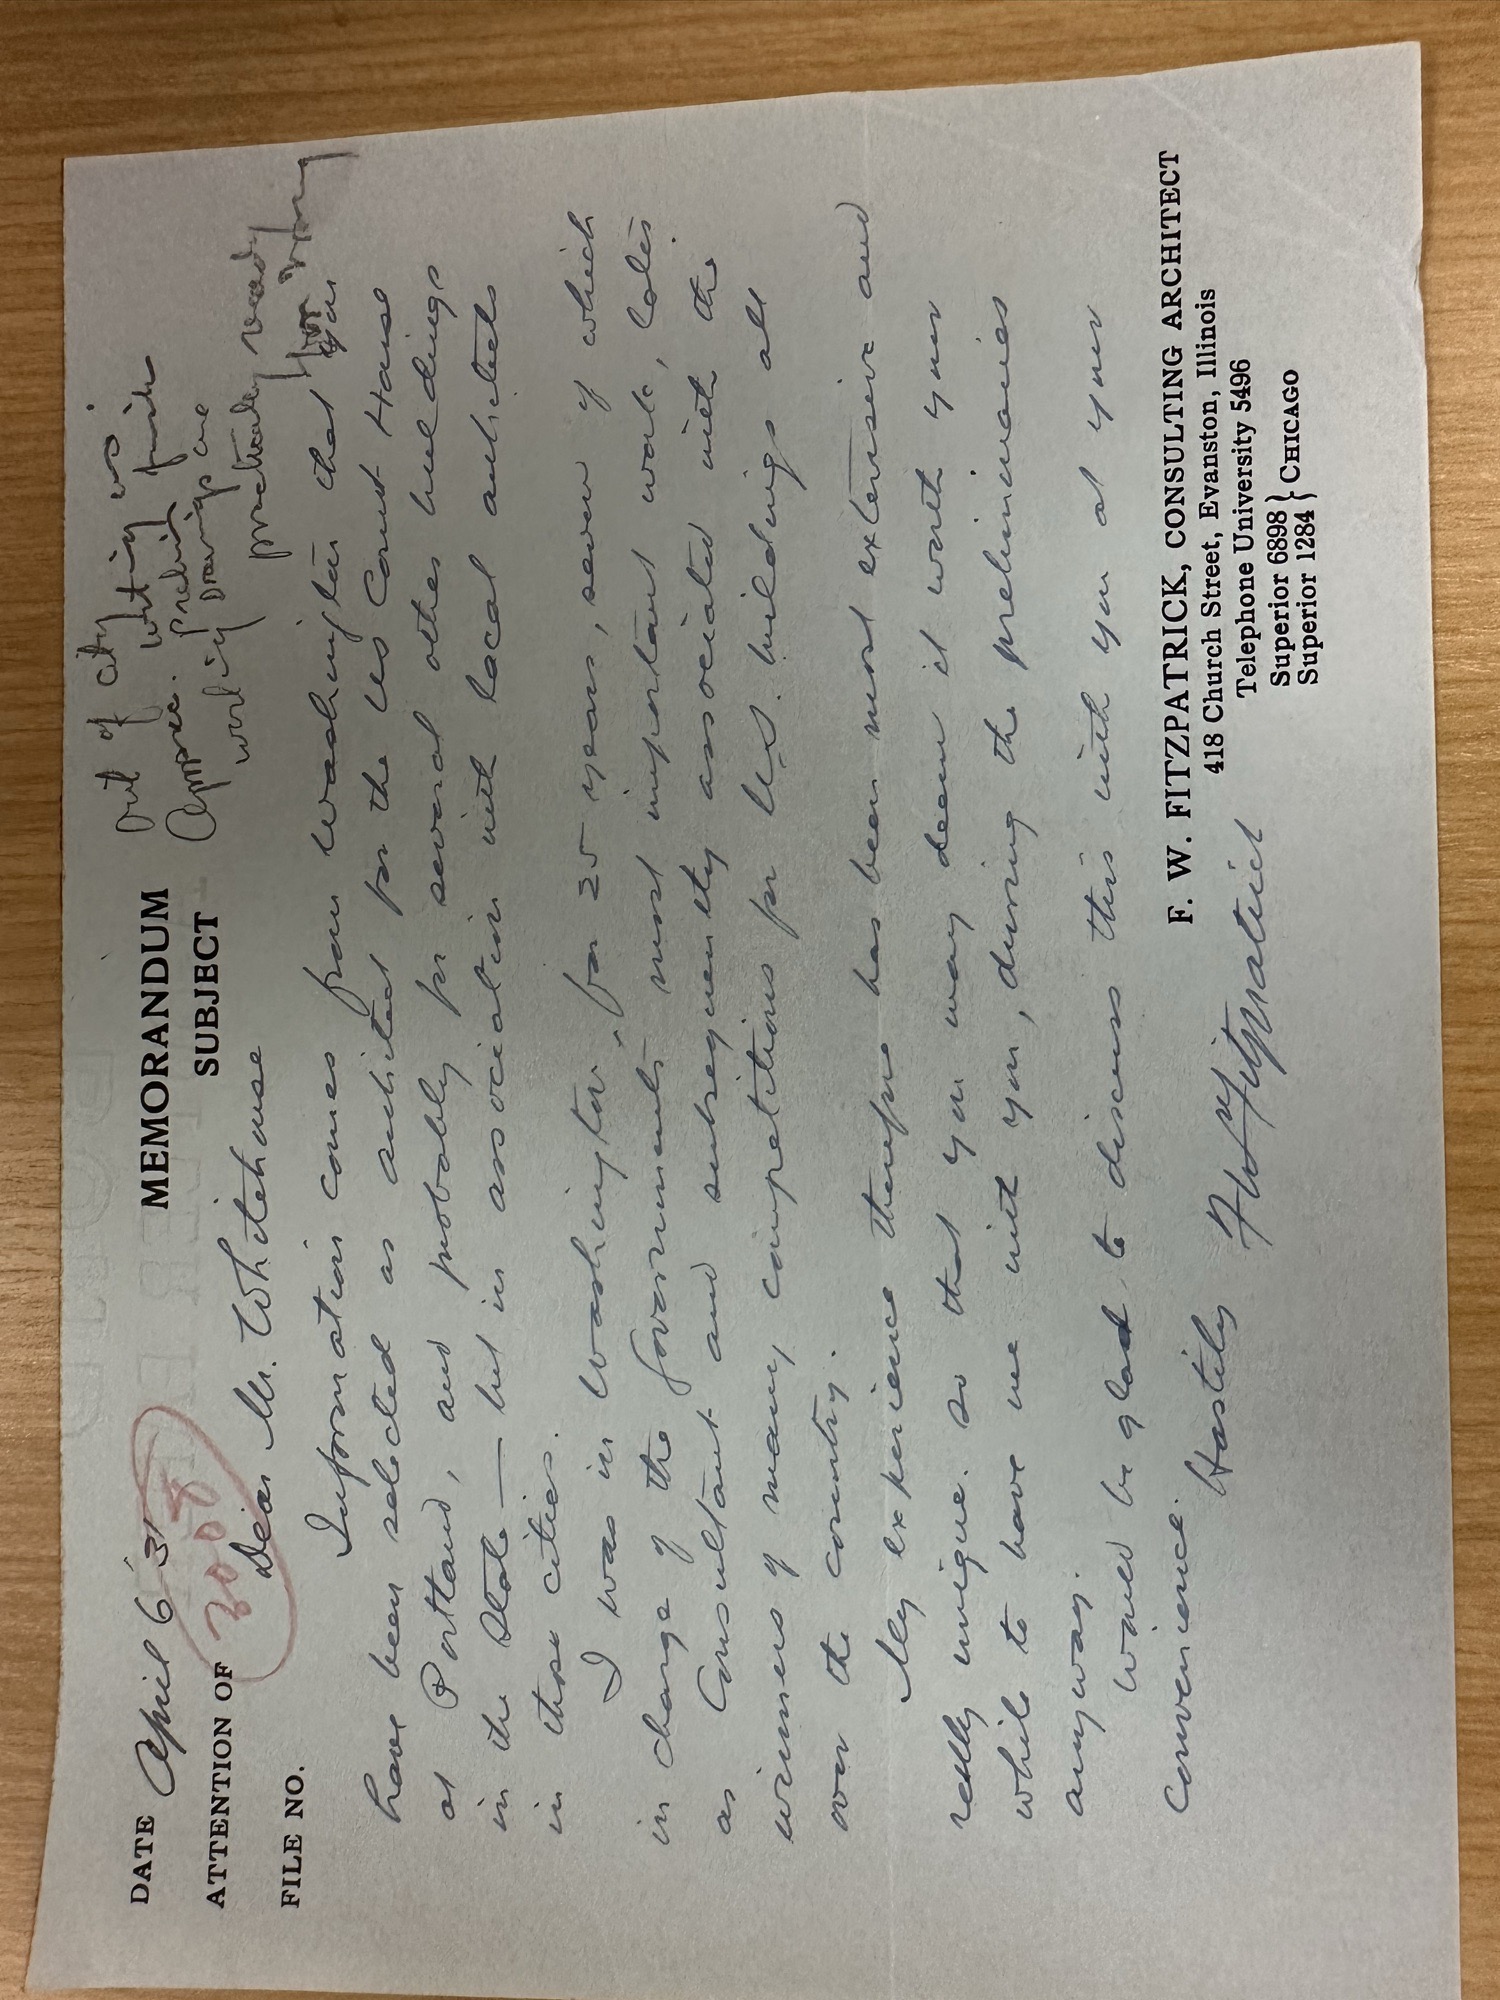 DATE April 6 '31
MEMORANDUM
out of city
writing us
Apprec.
finds
working drawings are
practically ready
for
ATTENTION OF
SUBJECT
FILE NO.
3008
Dear Mr. Whitehouse
Information comes from Washington that you
have been selected as architect for the US Court House
at Portland, and probably for several other buildings
in the State — but in association with local architects
in those cities.
I was in Washington for 25 years, seven of which
in charge of the Government's most important work, later
as Consultant and subsequently associated with the
winners of many competitions for U.S. buildings all
over the country.
My experience therefore has been most extensive and
really unique. So that you may deem it worth your
while to have me with you, during the preliminaries
anyway.
Would be glad to discuss this with you at your
convenience.
Hastily
FW Fitzpatrick
F. W. FITZPATRICK, CONSULTING ARCHITECT
418 Church Street, Evanston, Illinois
Telephone University 5496
Superior 6898 } CHICAGO
Superior 1284